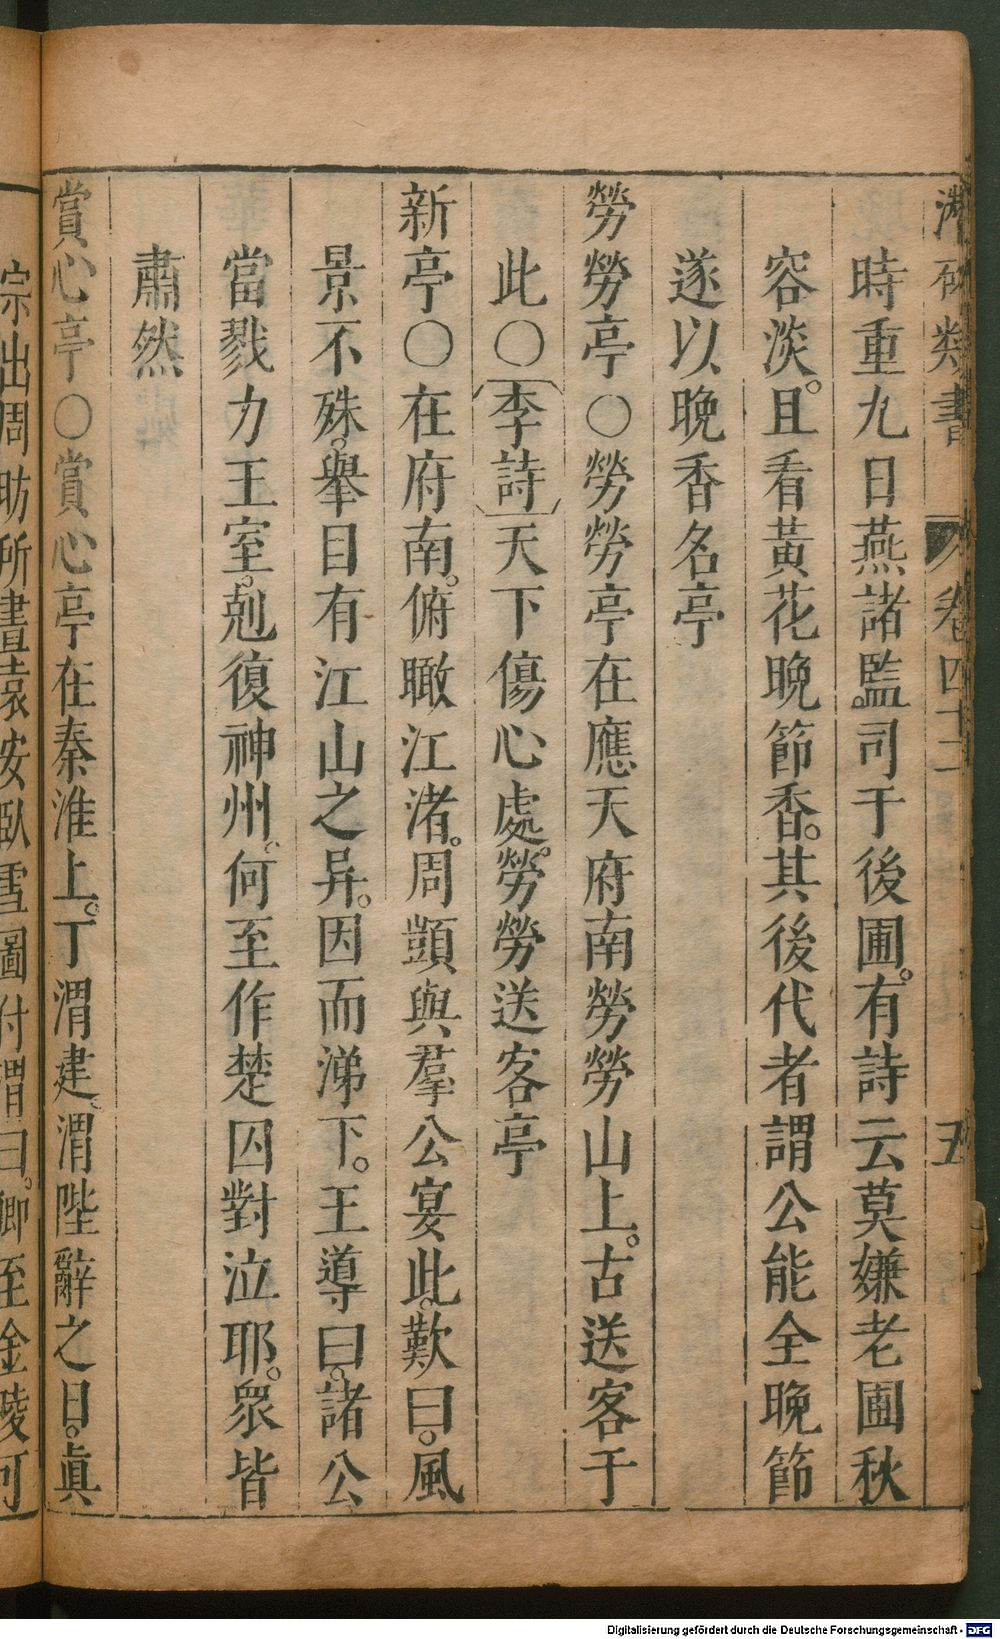 潛確類書 卷四十二 五
時重九日燕諸監司于後圃。有詩云莫嫌老圃秋
容淡。且看黃花晚節香。其後代者謂公能全晚節
遂以晚香名亭
勞勞亭〇勞勞亭在應天府南勞勞山上。古送客于
此〇李詩天下傷心處。勞勞送客亭
新亭〇在府南。俯瞰江渚。周顗與羣公宴此。歎曰。風
景不殊。舉目有江山之异。因而涕下。王導曰。諸公
當戮力王室。剋復神州。何至作楚囚對泣耶。衆皆
肅然
賞心亭〇賞心亭在秦淮上。丁渭建。渭陛辭之日。眞
宗出周昉所畫袁安臥雪圖付渭曰。卿至金陵可
Digitalisierung gefördert durch die Deutsche Forschungsgemeinschaft - DFG